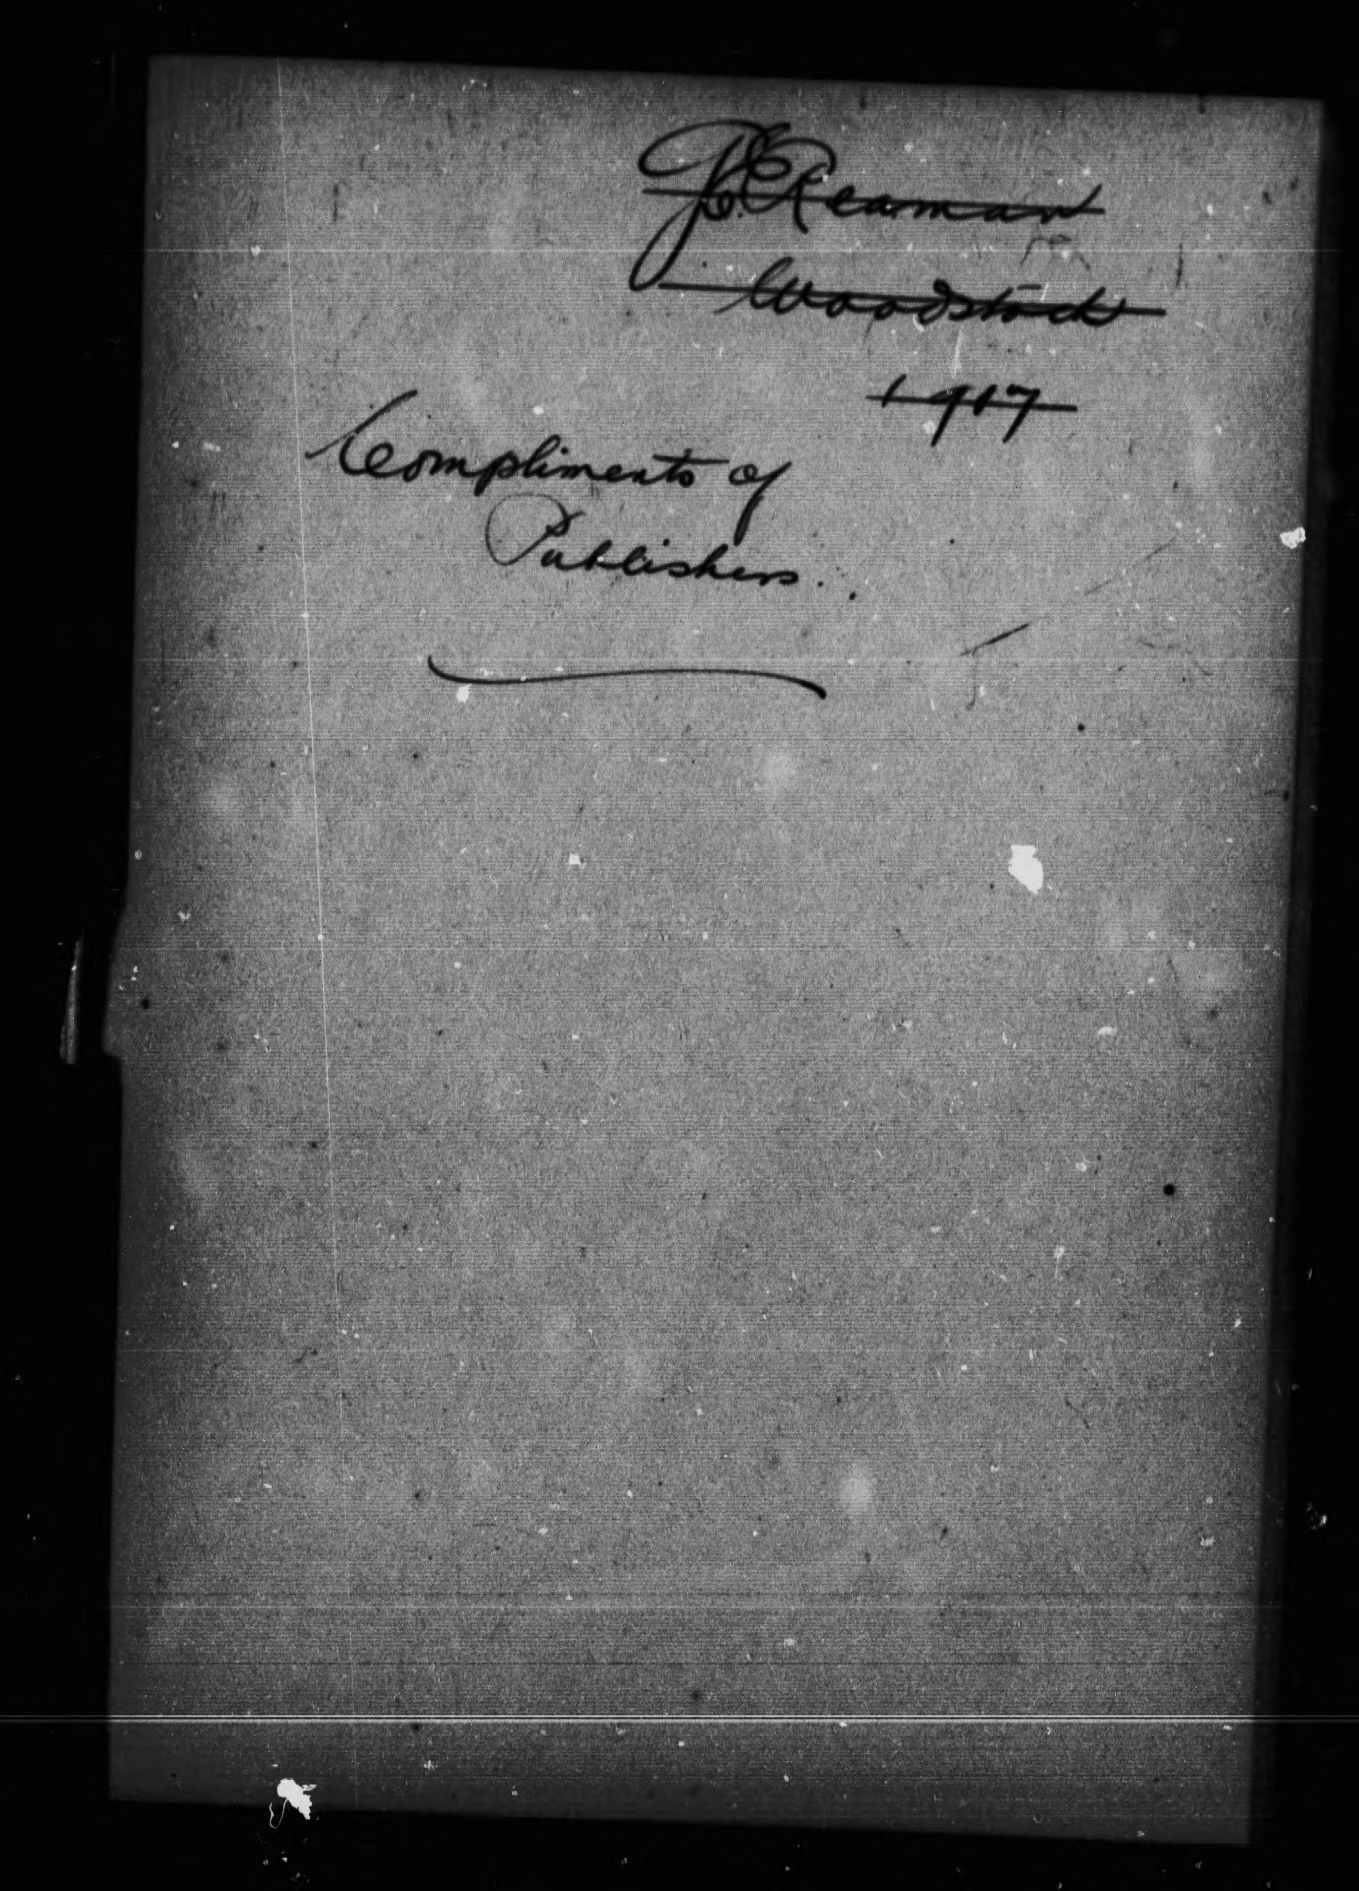 G. E. Reaman
Woodstock
1917
Compliments of
Publishers.